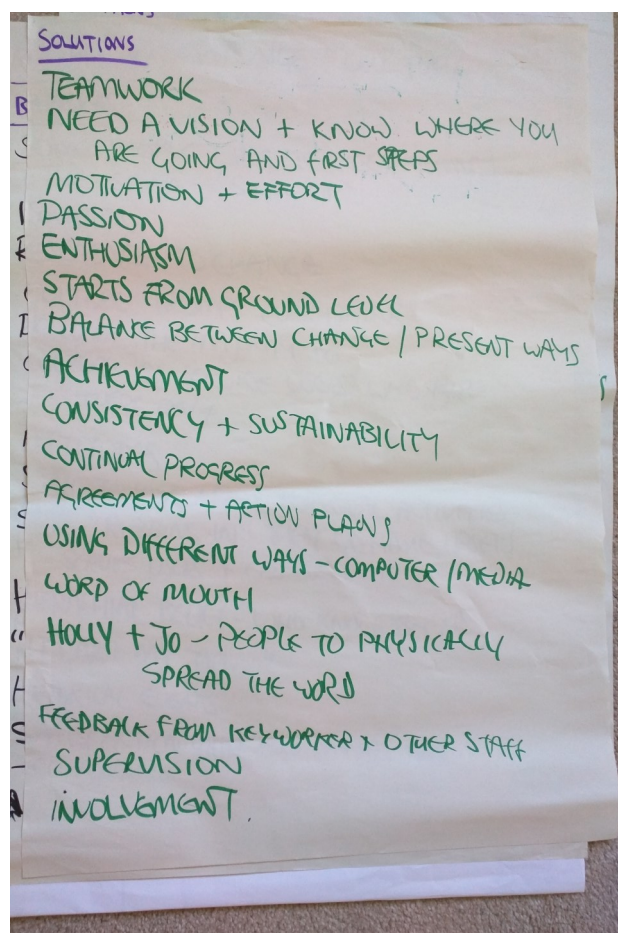 SOLUTIONS
TEAMWORK
NEED A VISION + KNOW WHERE YOU
ARE GOING AND FIRST STEPS
MOTIVATION + EFFORT
PASSION
ENTHUSIASM
STARTS FROM GROUND LEVEL
BALANCE BETWEEN CHANGE / PRESENT WAYS
ACHIEVEMENT
CONSISTENCY + SUSTAINABILITY
CONTINUAL PROGRESS
AGREEMENTS + ACTION PLANS
USING DIFFERENT WAYS - COMPUTER / MEDIA
WORD OF MOUTH
HOLLY + JO - PEOPLE TO PHYSICALLY
SPREAD THE WORD
FEEDBACK FROM KEYWORKER + OTHER STAFF
SUPERVISION
INVOLVEMENT.